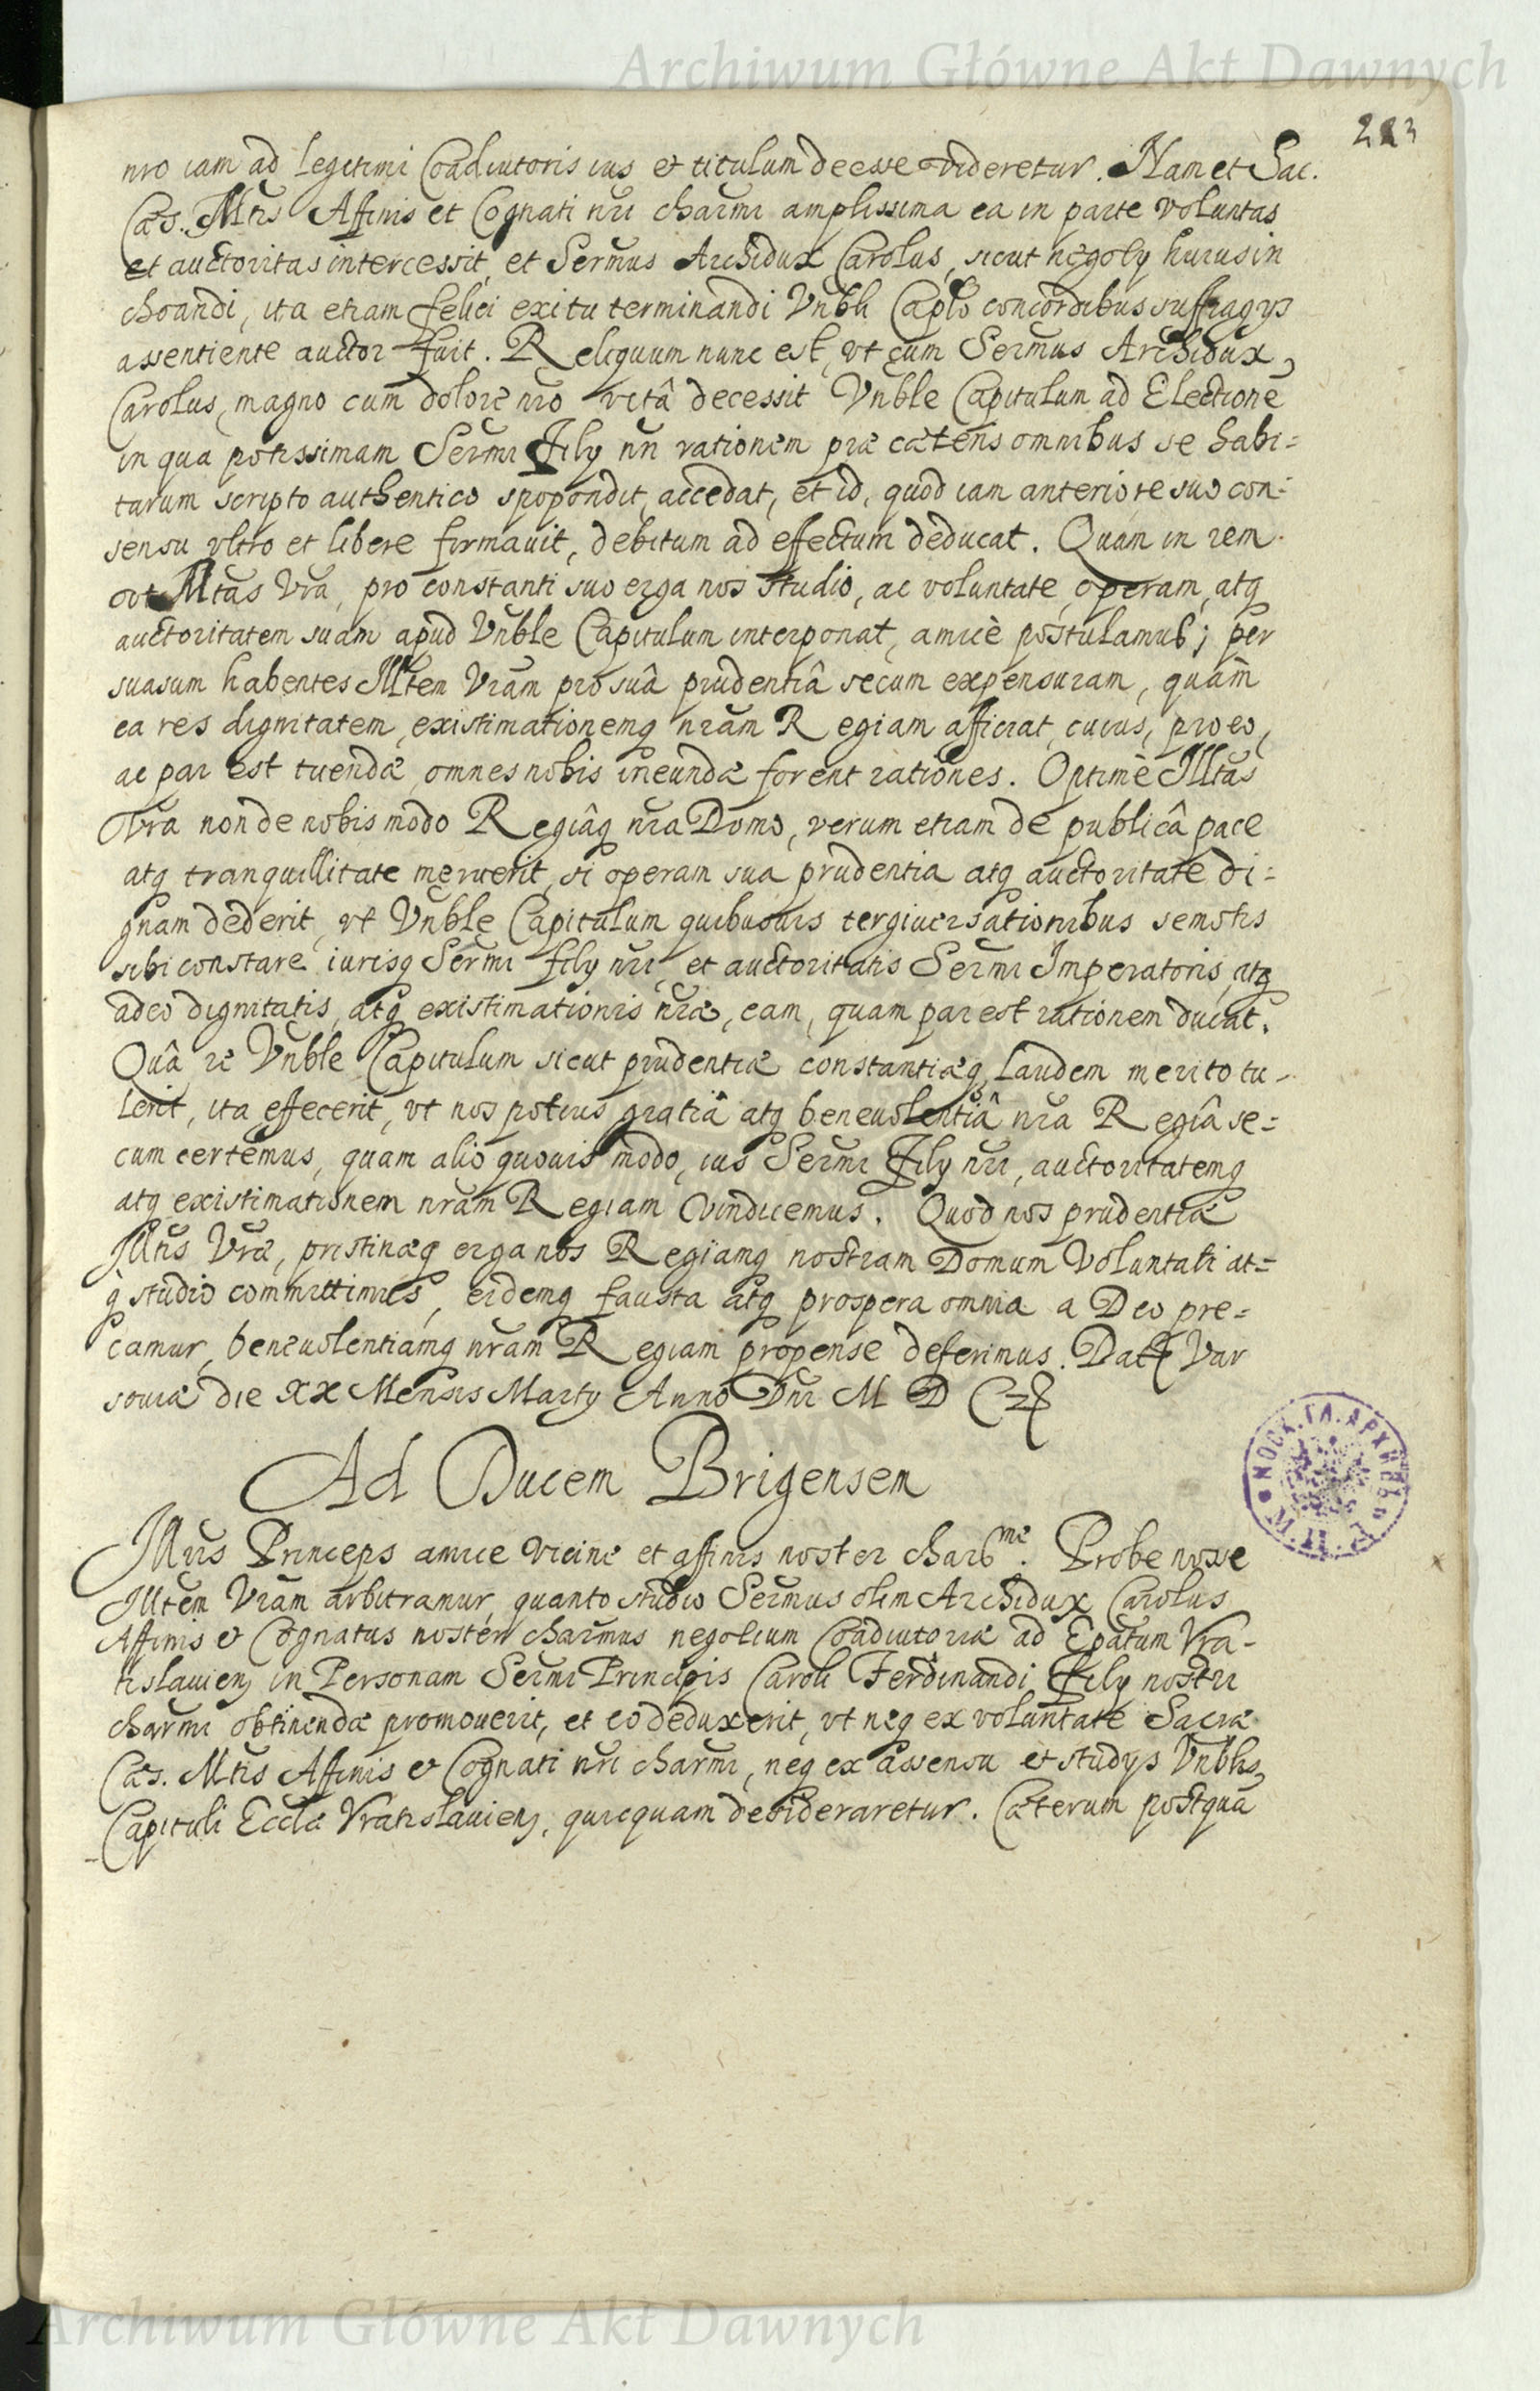 Archiwum Główne Akt Dawnych
223
nro iam ad legitimi Coadiutoris ius et titulum deesse videretur. Nam et Sac.
Caes. Mtis Affinis et Cognati nri charmi amplissima ea in parte voluntas
et auctoritas intercessit, et Sermus Archidux Carolus, sicut negoty huius in
choandi, ita etiam felici exitu terminandi Vnbli Caplo concordibus suffragys
assentiente auctor fuit. Reliquum nunc est, vt cum Sermus Archidux
Carolus, magno cum dolore nro vitâ decessit Vnble Capitulum ad Electionē
in qua potissimam Sermi Fily nri rationem prae caeteris omnibus se habi=
turum scripto authentico spopondit, accedat, et id, quod iam anteriore suo con=
sensu vltro et libere firmauit, debitum ad effectum deducat. Quam in rem
vt Mtas Vra, pro constanti suo erga nos studio, ac voluntate, operam, atq
auctoritatem suam apud Vnble Capitulum interponat, amicè postulamus; per
suasum habentes Illtem Vram pro suâ prudentiâ secum expensuram, quàm
ea res dignitatem, existimationemq nram Regiam afficiat, cuius, pro eo,
ac par est tuendae, omnes nobis ineundae forent rationes. Optimè Illtas
Vra non de nobis modo Regiâq nra Domo, verum etiam de publicâ pace
atq tranquillitate meruerit, si operam sua prudentia atq auctoritate di=
gnam dederit, vt Vnble Capitulum quibusuis tergiuersationibus semotis
sibi constare iurisq Sermi fily nri, et auctoritatis Sermi Imperatoris, atq
adeo dignitatis, atq existimationis nrae, eam, quam par est rationem ducat.
Quâ re Vnble Capitulum sicut prudentiae constantiaeq laudem merito tu-
lerit, ita effecerit, vt nos potius gratiâ atq beneuolentiâ nra Regiâ se=
cum certemus, quam alio quouis modo, ius Sermi Fily nri, auctoritatemq
atq existimationem nram Regiam vindicemus. Quod nos prudentiae
Illtis Vrae, pristinaeq erga nos Regiamq nostram Domum Voluntati at=
q studio committimus, eidemq fausta atq prospera omnia a Deo pre=
camur, beneuolentiamq nram Regiam propense deferimus. Datt Var
souiae die XX Mensis Marty Anno Dni M D C 25
Ad Ducem Brigensem
Illris Princeps amice vicine et affinis noster charisme. Probe nosse
Illtem Vram arbitramur, quanto studio Sermus olim Archidux Carolus
Affinis et Cognatus noster charmus negotium Coadiutoriae ad Epatum Vra-
tislauien, in Personam Sermi Principis Caroli Ferdinandi Fily nostri
charmi obtinendae promouerit, et eo deduxerit, vt neq ex voluntate Sacrae
Caes. Mtis Affinis et Cognati nri charmi, neq ex assensu et studys Vnblis
Capituli Ecclae Vratislauien, quicquam desideraretur. Caeterum postquā
МОСК.ГЛ.АРХИВЪ М.И.Д.
Archiwum Główne Akt Dawnych